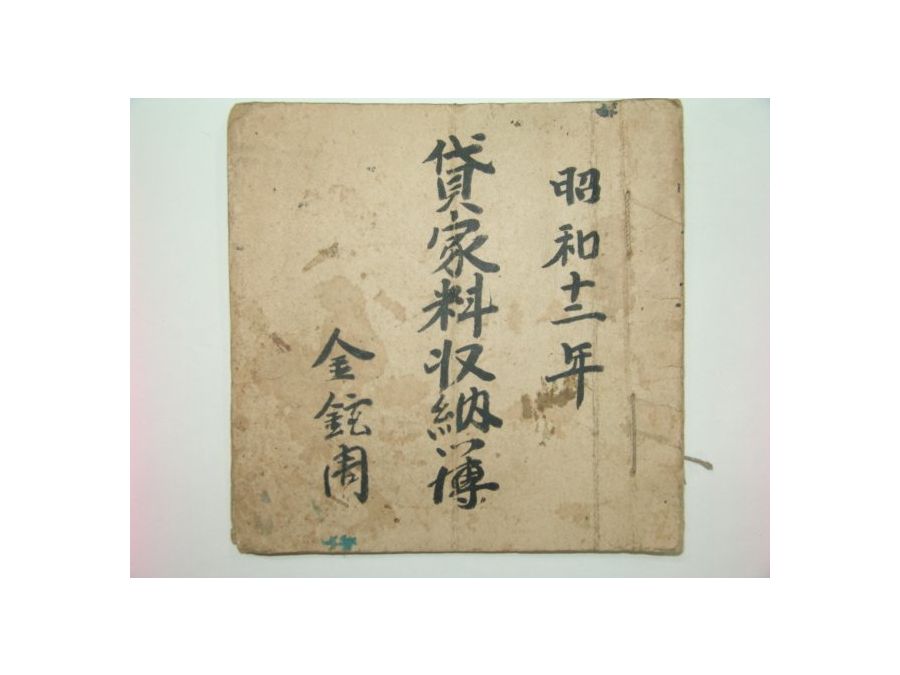 昭和十二年
貸家料収納簿
金鉉周